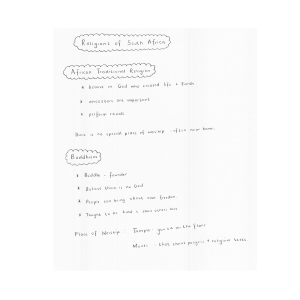 Religions of South Africa
African Traditional Religion
* believe in God who created life +
* ancestors are important
* perform rituals
is no special place of worship - often near home.
Buddhism
* Buddha - founder
* Believe there is no God
* People can bring about own freedom
* Temple to be kind +
Place of Worship Temple - on the floor
Monks - that share prayers + religious texts.